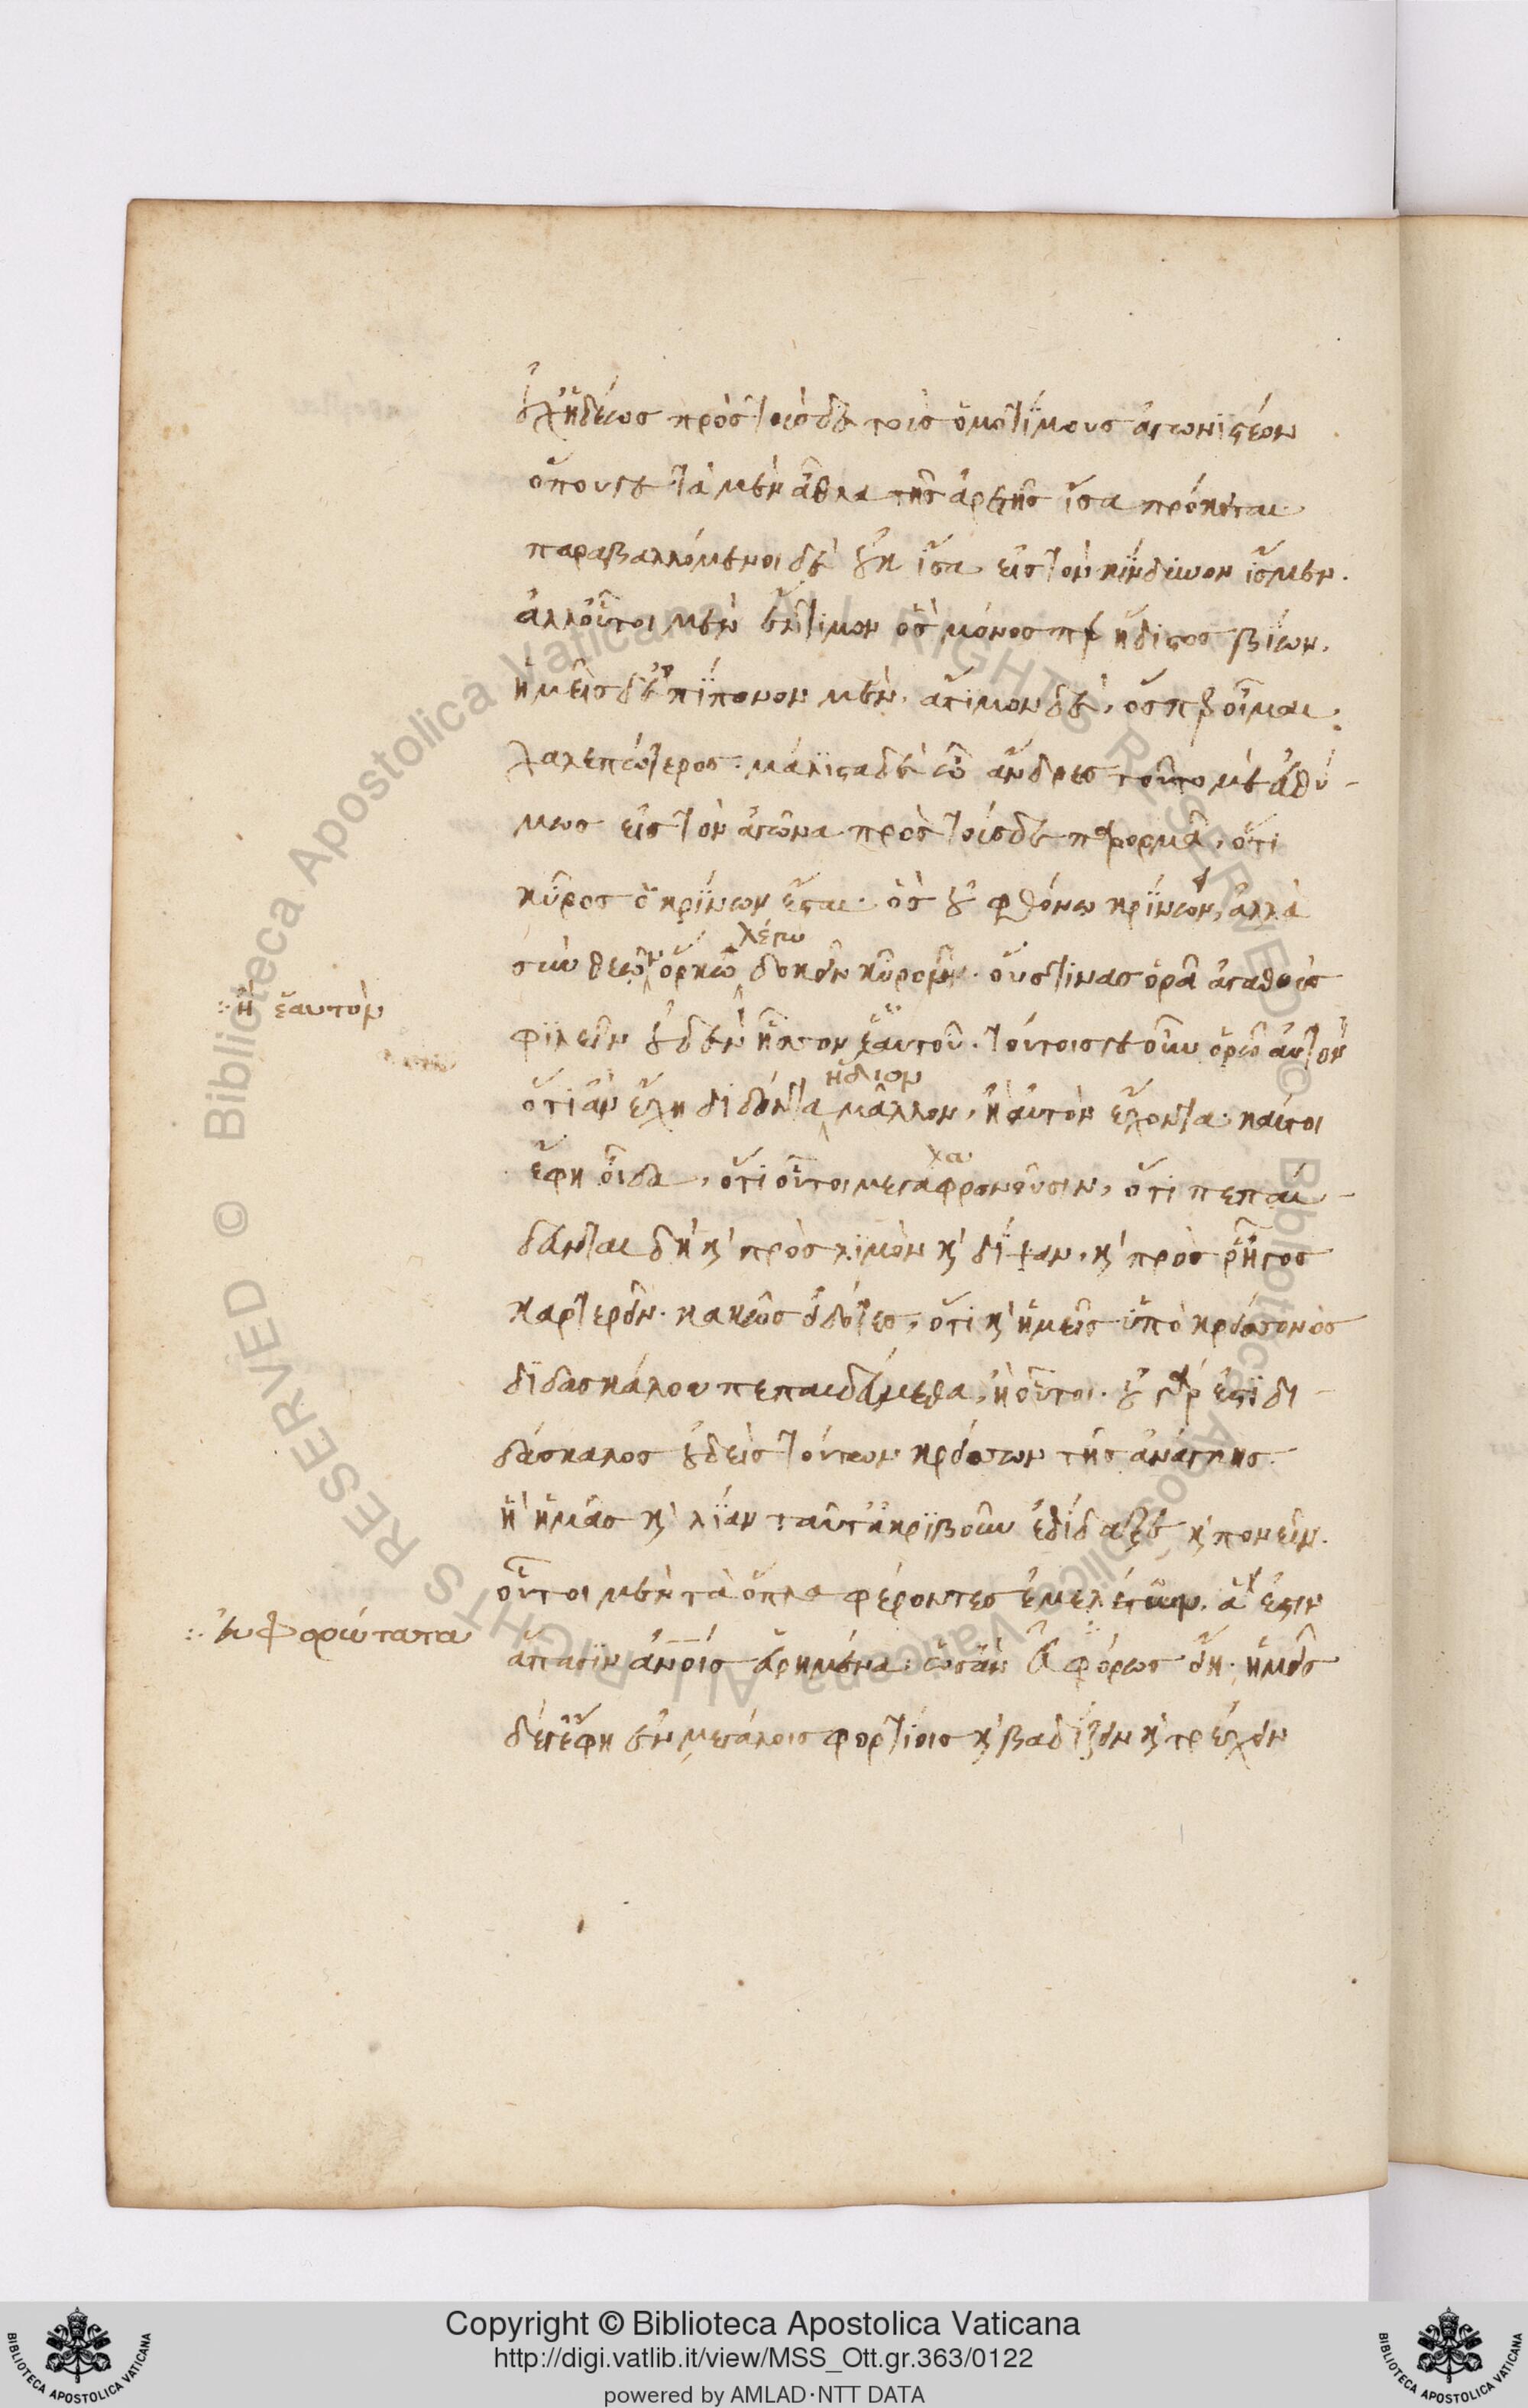 οὐχ ἡδέως πρὸς τούσδε τοὺς ὁμοτίμους ἀγωνιστέον
ὅπου γε τὰ μὲν ἆθλα τῆς ἀρετῆς ἴσα πρόκειται
παραβαλλόμενοι δὲ οὐκ ἴσα εἰς τὸν κίνδυνον ἴσμεν.
ἀλλ' οὗτοι μὲν ἔντιμον ὃς μόνος ἥδιστος βίων.
ἡμεῖς δ' ἐπίπονον μὲν. ἄτιμον δὲ, ὅσπερ οἶμαι
χαλεπώτερος. μάλιστα δὲ ὦ ἄνδρες τοῦτό με εὐθύ-
μως εἰς τὸν ἀγῶνα πρὸς τούσδε παρορμᾷ, ὅτι
κῦρος ὁ κρίνων ἔσται. ὃς οὐ φθόνῳ κρίνων, ἀλλὰ
σὺν θεῶν ὅρκῳ λέγω δοκεῖν κῦρον. οὕστινας ὁρᾷ ἀγαθοὺς
φιλεῖν οὐδὲν ἧττον ἑαυτοῦ. τούτοις γε οὖν ὁρῶ αὐτὸν
ὅτι ἂν ἔχη διδόντα ἥδιον μᾶλλον, ἢ αὐτὸν ἔχοντα. καίτοι
ἔφη οἶδα, ὅτι οὗτοι μεγαφρονοῦσιν, ὅτι πεπαί-
δευνται δὴ καὶ πρὸς λιμὸν καὶ δίψαν, καὶ πρὸς ῥῖγος
καρτερεῖν. κακῶς εἰδότες, ὅτι καὶ ἡμεῖς ὑπὸ κρείσσονος
διδασκάλου πεπαιδεύμεθα, ἢ οὗτοι. οὐ γάρ ἐστι δι-
δάσκαλος οὐδεὶς τούτων κρείσσων τῆς ἀνάγκης.
ἣ ἡμᾶς καὶ λίαν ταῦτ' ἀκριβοῦν ἐδίδαξε καὶ πονεῖν.
οὗτοι μὲν τὰ ὅπλα φέροντες ἐμελέτων. ἅ ἐστιν
ἅπασιν ἀνοις εὑρημένα. ὡς ἂν εὐφόρως εἴη. ἡμεῖς
δέ γ' ἔφη ἐν μεγάλοις φορτίοις καὶ βαδίζειν καὶ τρέχειν
ἢ ἑαυτὸν
εὐφορώτατα
Copyright © Biblioteca Apostolica Vaticana
http://digi.vatlib.it/view/MSS_Ott.gr.363/0122
powered by AMLAD·NTT DATA
BIBLIOTECA APOSTOLICA VATICANA
BIBLIOTECA APOSTOLICA VATICANA
Biblioteca Apostolica Vaticana ALL RIGHTS RESERVED ©
Biblioteca Apostolica Vaticana ALL RIGHTS RESERVED ©